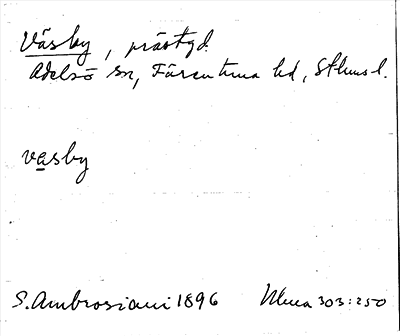 Väsby, prästgd.
Adelsö sn, Färentuna hd, Sthms l.
vasby
S. Ambrosiani 1896 303:250